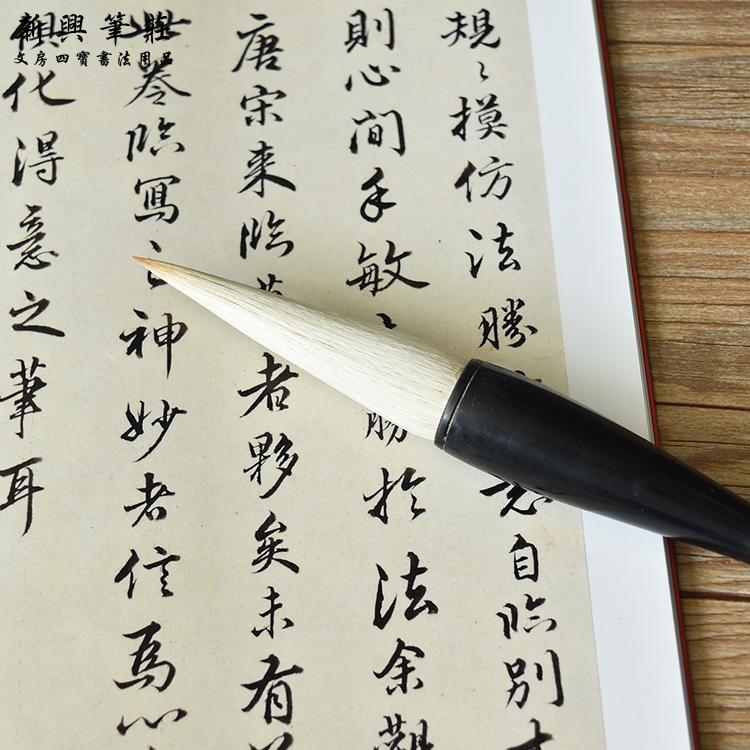 新興筆莊
文房四寶書法用品
規〻摸仿法勝
自臨別
則心間手敏
勝於法余觀
唐宋來臨
者夥矣未有
此卷臨寫之神妙者信爲心
化得意之筆耳